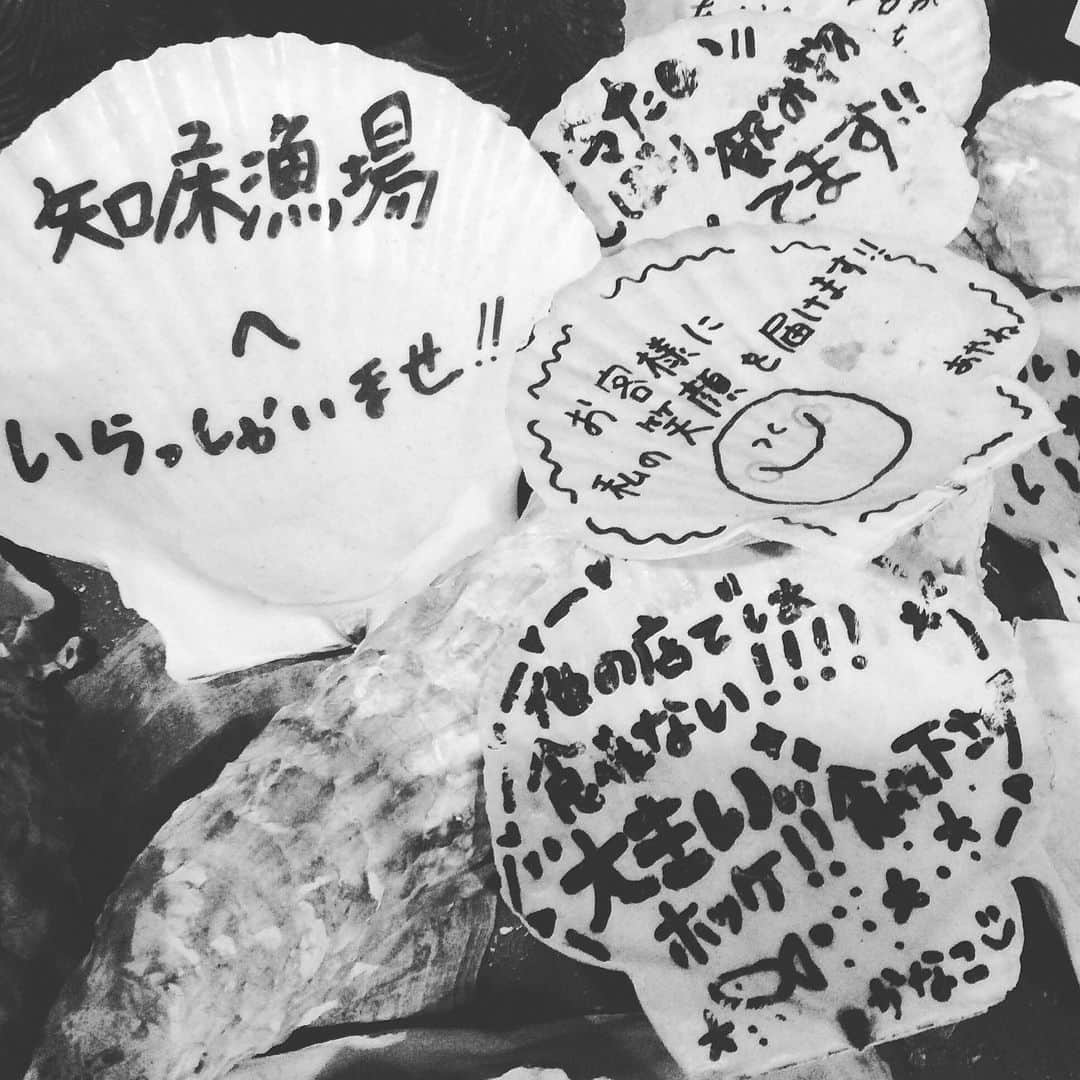 知床漁場
へ
いらっしゃいませ!!
飲み物
でます!!
お客様に
私の笑顔を届けます!!
あやね
他の店では
食べれない!!!!
大きい!!
ホッケ!! 食べて下さい
かなこじ